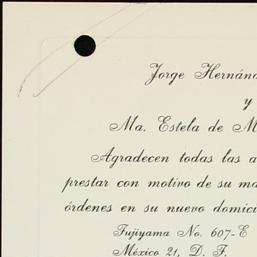 Jorge Hernánd
y
Ma. Estela de M
Agradecen todas las a
prestar con motivo de su ma
órdenes en su nuevo domici
Fujiyama No. 607-E
México 21, D. F.